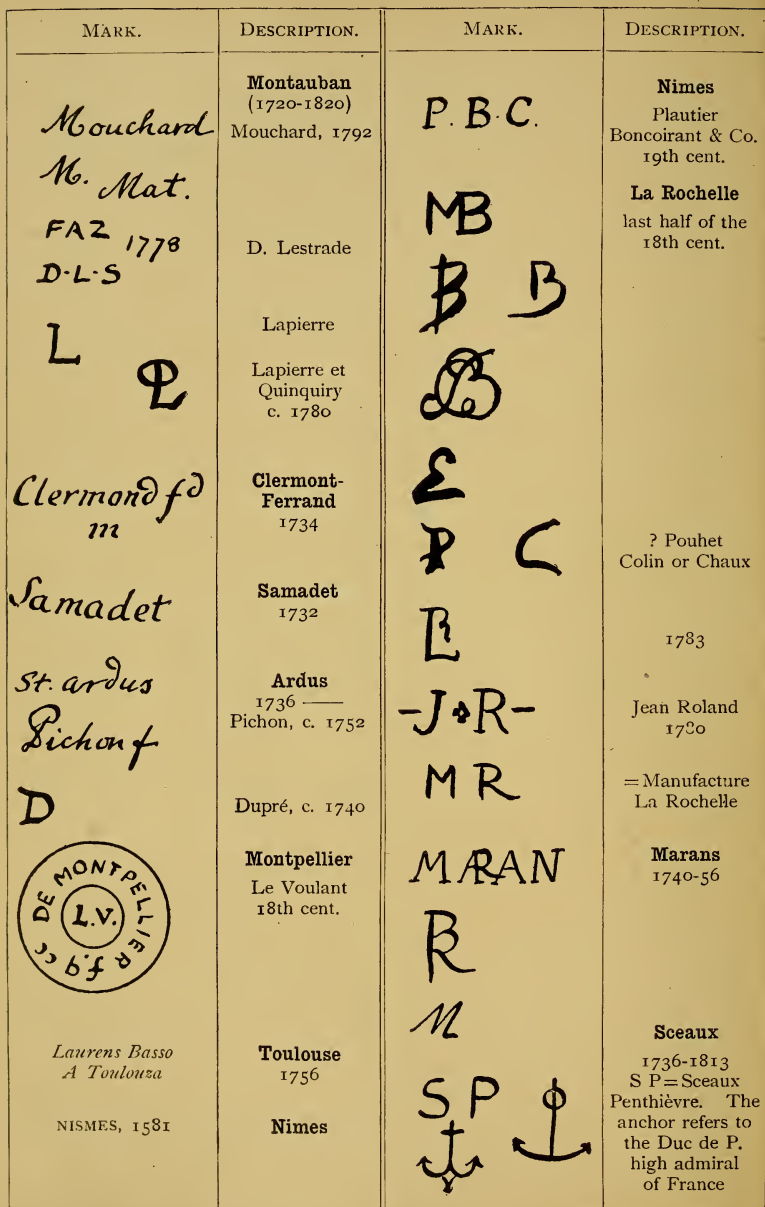 MARK.
DESCRIPTION.
Montauban
(1720-1820)
Mouchard
Mouchard, 1792
M. Mat.
FAZ 1778
D·L·S
D. Lestrade
L
Lapierre
Lapierre et
Quinquiry
c. 1780
Clermond fd
m
Clermont-
Ferrand
1734
Samadet
Samadet
1732
St. ardus
Ardus
1736 ——
Pichon f
Pichon, c. 1752
D
Dupré, c. 1740
DE MONTPELLIER f. q cc
L.V.
Montpellier
Le Voulant
18th cent.
Laurens Basso
A Toulouza
Toulouse
1756
NISMES, 1581
Nimes
MARK.
DESCRIPTION.
P. B. C.
Nimes
Plautier
Boncoirant & Co.
19th cent.
MB
La Rochelle
last half of the
18th cent.
B B
P C
? Pouhet
Colin or Chaux
1783
-J R-
Jean Roland
M R
=Manufacture
La Rochelle
MARAN
Marans
1740-56
BR
M
Sceaux
1736-1813
S P
S P=Sceaux
Penthièvre. The
anchor refers to
the Duc de P.
high admiral
of France